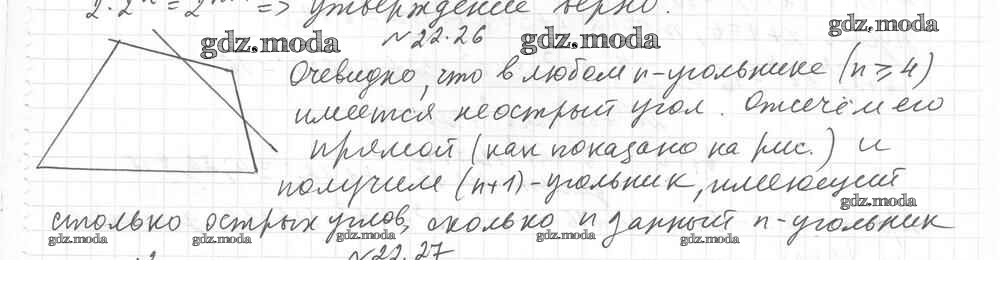 2·2ⁿ = 2ⁿ⁺¹ => утверждение верно.
gdz.moda gdz.moda gdz.moda
№22.26
Очевидно, что в любом n-угольнике (n ⩾ 4)
имеется неострый угол. Отсечём его
прямой (как показано на рис.) и
получим (n+1)-угольник, имеющий
gdz.moda
столько острых углов, сколько и данный n-угольник
gdz.moda gdz.moda gdz.moda gdz.moda gdz.moda
№22.27